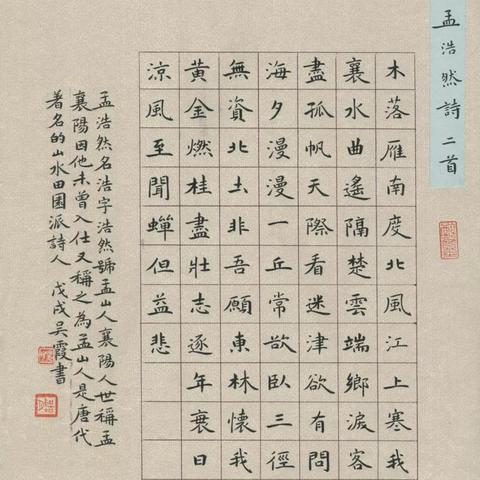 孟浩然詩二首
木落雁南度北風江上寒我
襄水曲遙隔楚雲端鄉淚客
盡孤帆天際看迷津欲有問
海夕漫漫一丘常欲臥三徑
無資北土非吾願東林懷我
黃金燃桂盡壯志逐年衰日
涼風至聞蟬但益悲
孟浩然名浩字浩然號孟山人襄陽人世稱孟
襄陽因他未曾入仕又稱之為孟山人是唐代
著名的山水田園派詩人 戊戌吳霞書